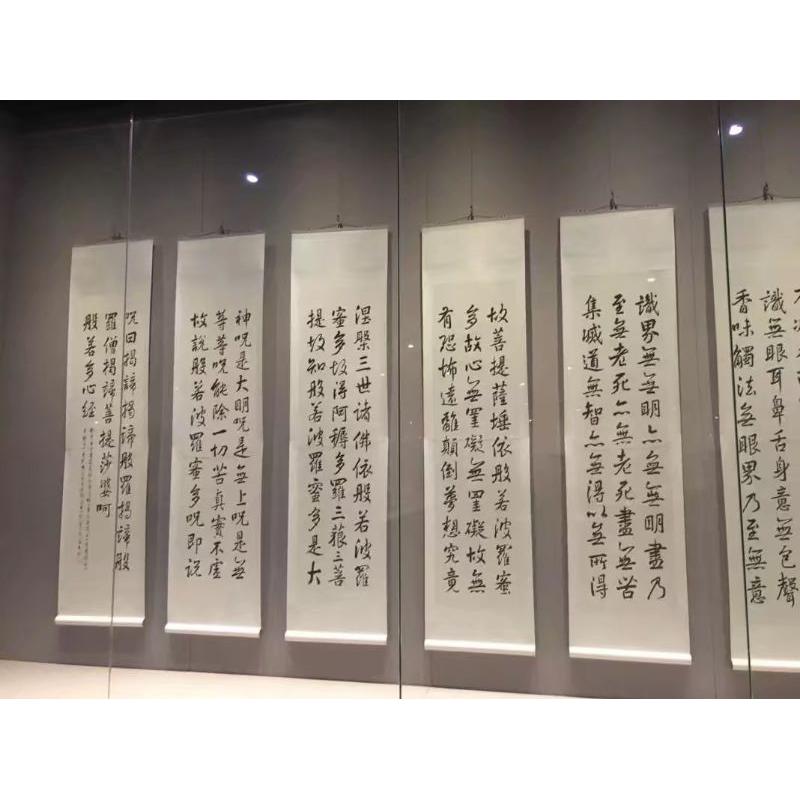 識無眼耳鼻舌身意無色聲
香味觸法無眼界乃至無意
識界無無明亦無無明盡乃
至無老死亦無老死盡無苦
集滅道無智亦無得以無所得
故菩提薩埵依般若波羅蜜
多故心無罣礙無罣礙故無
有恐怖遠離顛倒夢想究竟
涅槃三世諸佛依般若波羅
蜜多故得阿耨多羅三藐三菩
提故知般若波羅蜜多是大
神呪是大明呪是無上呪是無
等等呪能除一切苦真實不虛
故說般若波羅蜜多呪即説
呪曰揭諦揭諦般羅揭諦般
羅僧揭諦菩提莎婆呵
般若多心經